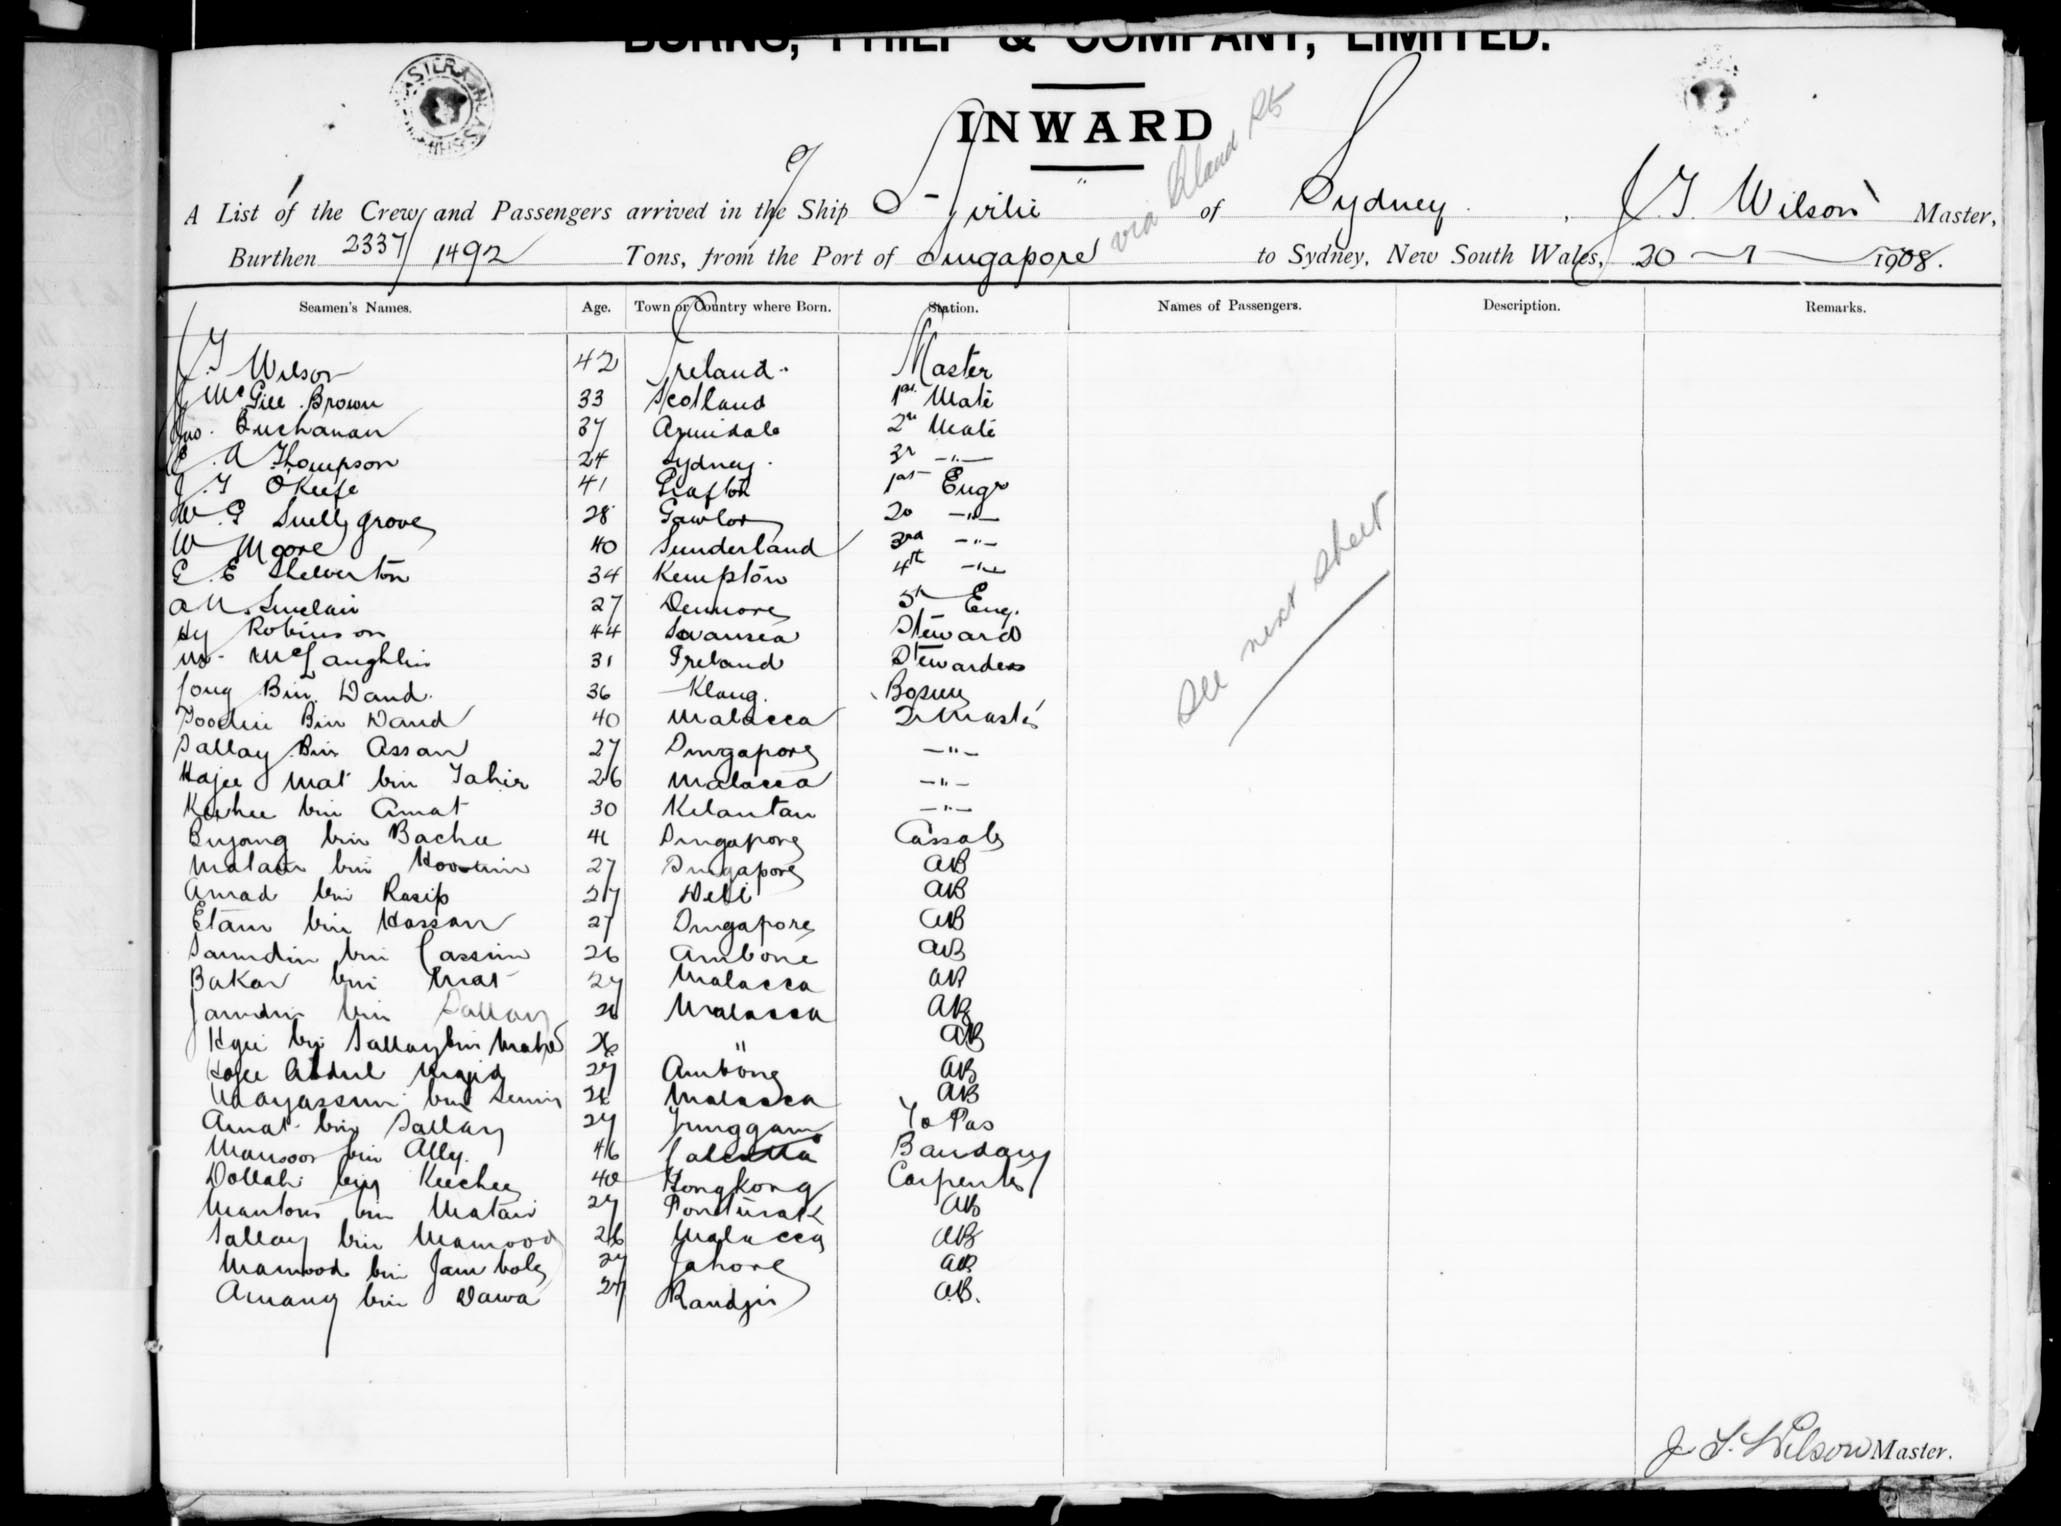 BURNS, PHILP & COMPANY, LIMITED.
INWARD
A List of the Crew and Passengers arrived in the Ship of Sydney, J.T. Wilson Master,
via Island Pts
Burthen 2337/1492 Tons, from the Port of Singapore to Sydney, New South Wales, 20 – 1 – 1908.
Seamen's Names. Age. Town or Country where Born. Station. Names of Passengers. Description. Remarks.
J.T Wilson 42 Ireland. Master
J McGill Brown 33 Scotland 1st Mate
Jno. Buchanan 37 Armidale 2nd Mate
E. A Thompson 24 Sydney. 3rd –"–
J. T O'Keefe 41 Grafton 1st Engr
W. G Snellgrove 28 Gawler 2d –"–
W Moore 40 Sunderland 3rd –"–
E. E Shelverton 34 Kempton 4th –"–
A M. Sinclair 27 Denmore 5th Eng.
Hy Robinson 44 Swansea Steward
Ms. McLaughlin 31 Ireland Stewardess
Jong Bin Daud. 36 Klang. Bosun
Poodin Bin Daud 40 Malacca
Sallay Bin Assan 27 Singapore –"–
Hajee Mat bin Tahir 26 Malacca –"–
Keehee bin Amat 30 Kelantan –"–
Buyong bin Bachee 41 Singapore Cassab
Matair bin 27 Singapore AB
Amad bin Rasip 27 Deli AB
Etam bin Hassan 27 Singapore AB
bin Cassim 26 Ambone AB
Bakar bin Mat 27 Malacca AB
Jamdin bin Sallay 26 Malacca AB
Sallay bin 26 " AB
Hajee Abdul Majid 27 Ambong AB
bin 26 Malacca AB
Amat bin Sallay 27 To Pas
Mansoor bin Ally. 46 Calcutta Bandary
Dollah bin Keechee 40 Hongkong Carpenter
bin Matair 27 AB
Sallay bin Mamood 26 Malacca AB
Mamood bin 27 Jahore AB
Amang bin Dawa 27 A.B.
See next sheet
J. T. Wilson Master.